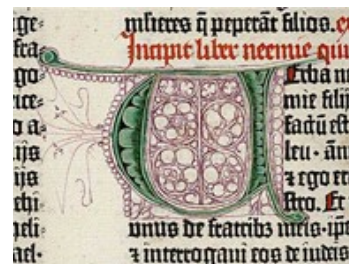 ige⸗
fra⸗
go
ice⸗
o a⸗
ijs
ijs
chi⸗
heli⸗
ael·
q̄ peperāt filios.
Incipit liber neemie qui
Erba
mie filij
factū est
leu · ān
⁊ ego
stro. Et
unus de fratribꝫ meis ·
⁊ interrogaui eos de iudeis